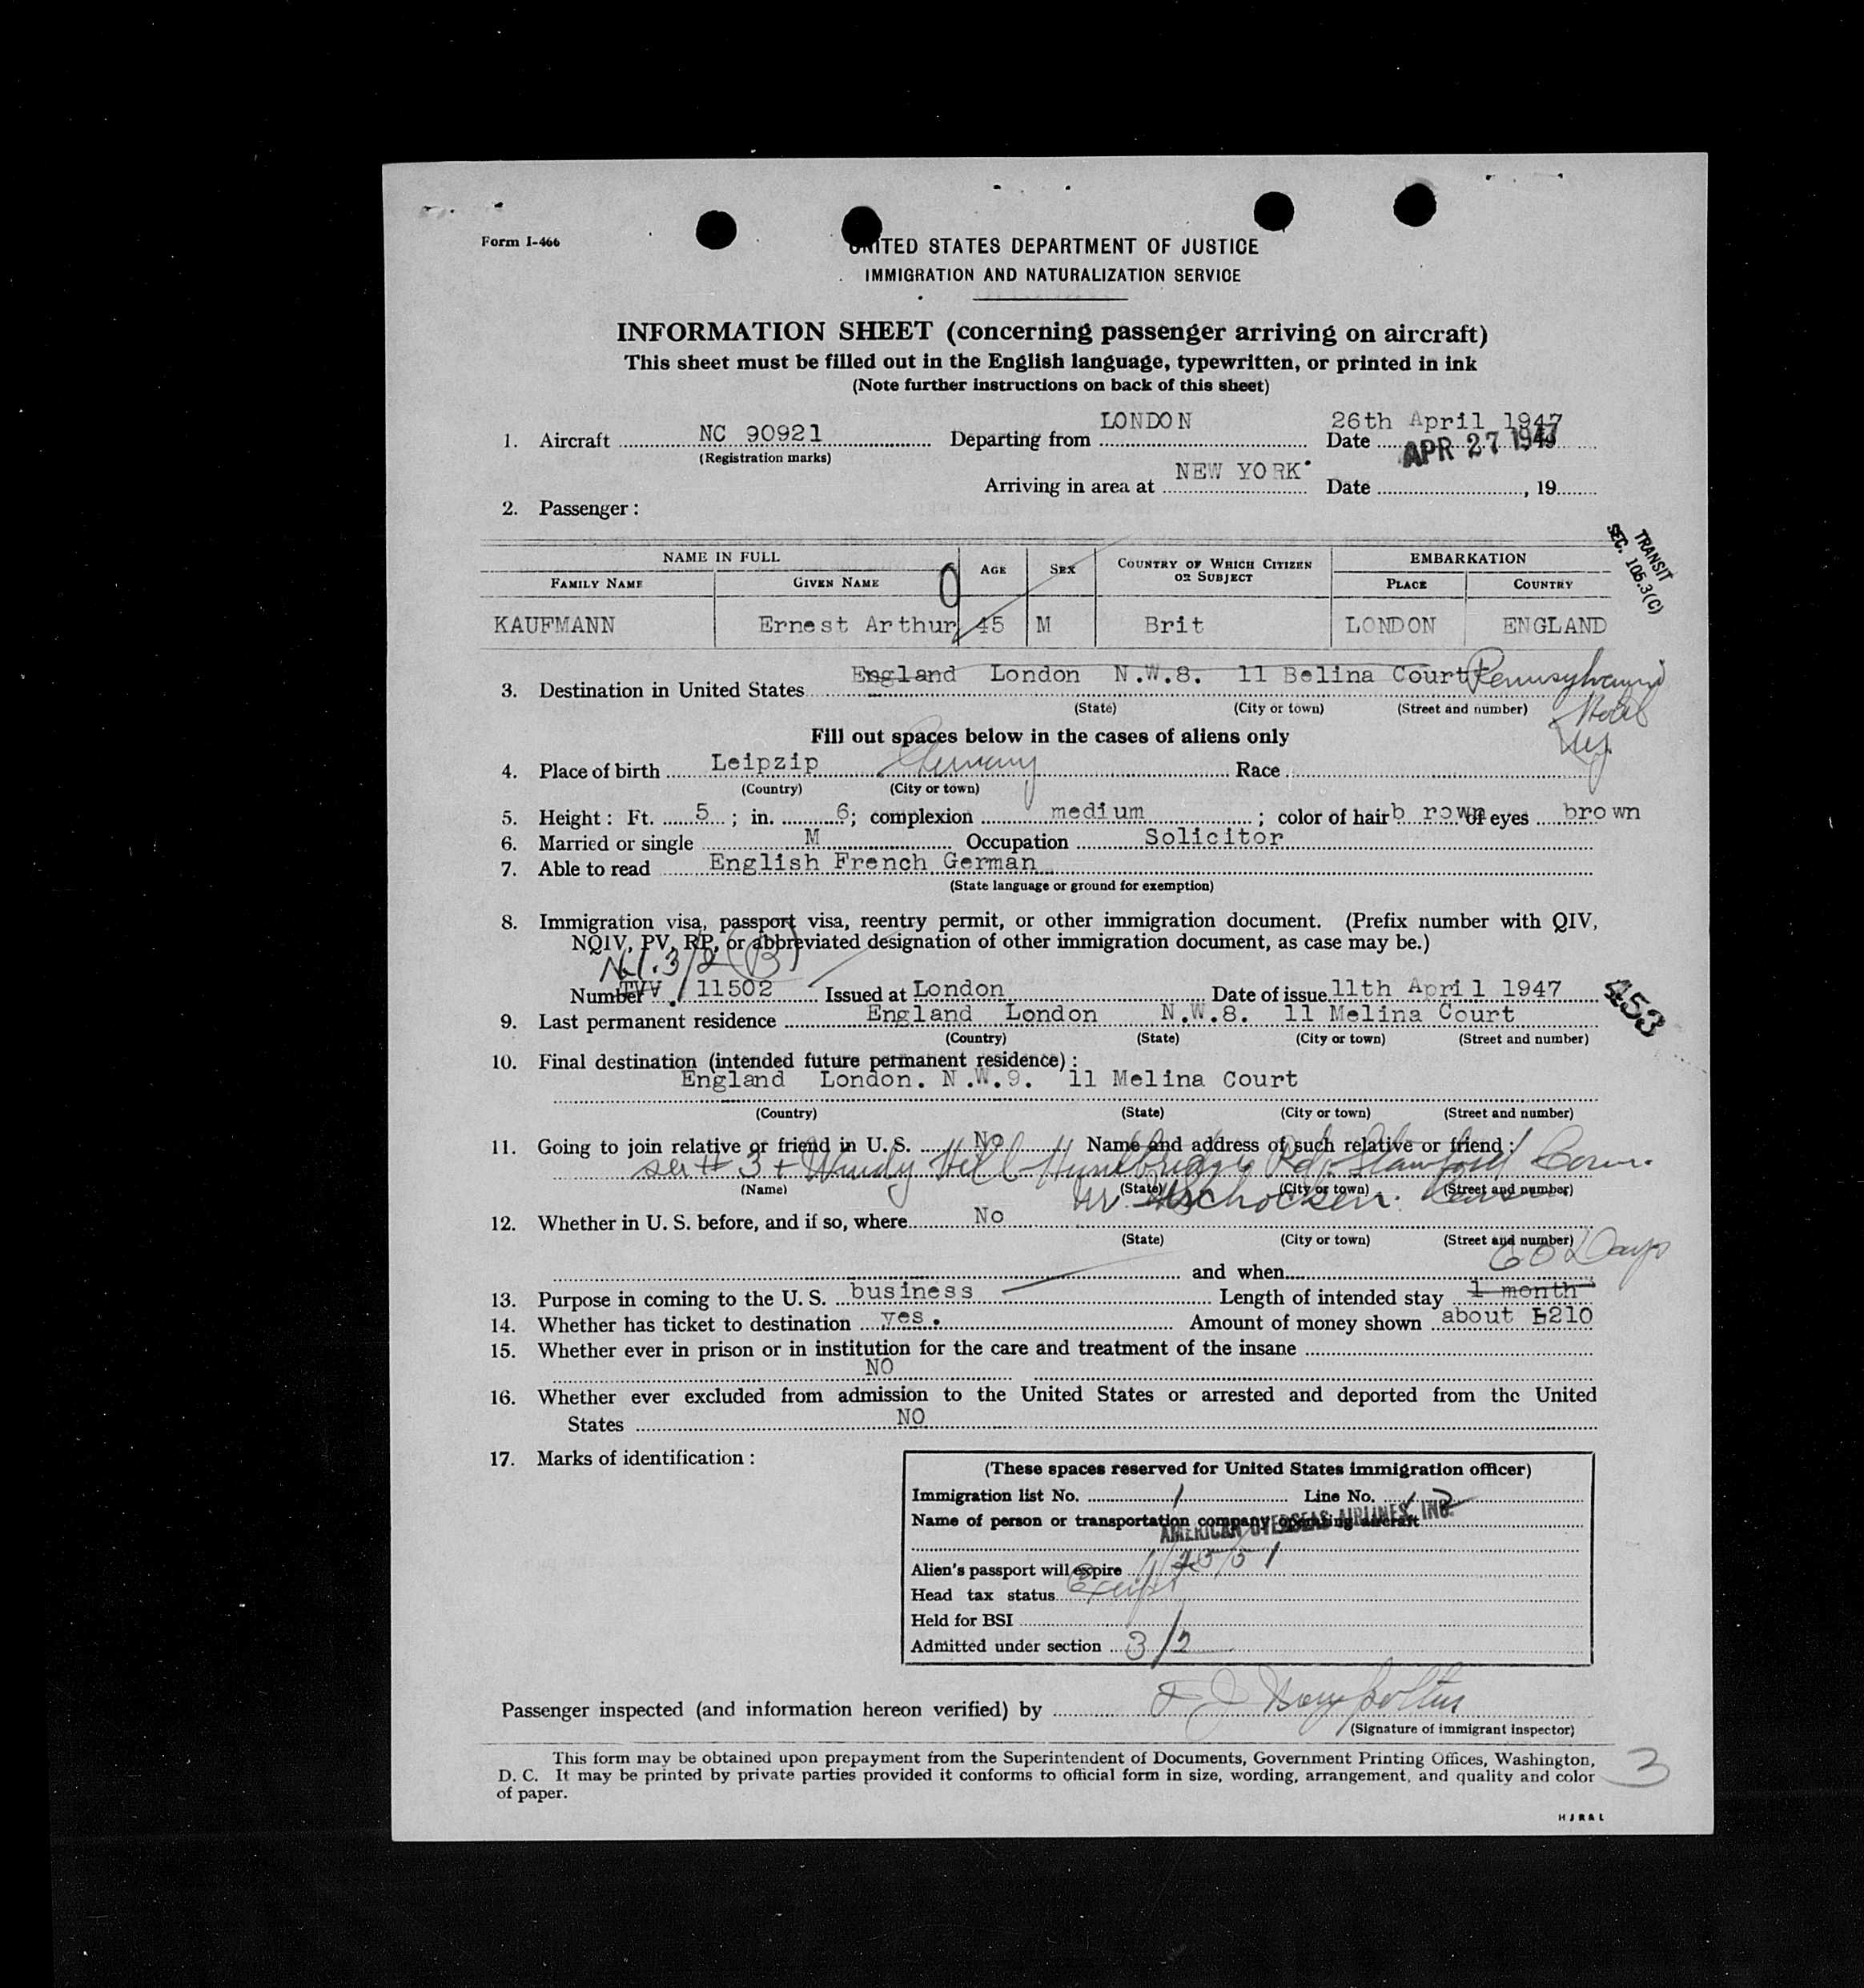 Form I-466
UNITED STATES DEPARTMENT OF JUSTICE
IMMIGRATION AND NATURALIZATION SERVICE
INFORMATION SHEET (concerning passenger arriving on aircraft)
This sheet must be filled out in the English language, typewritten, or printed in ink
(Note further instructions on back of this sheet)
1. Aircraft NC 90921 Departing from LONDON Date 26th April 1947
(Registration marks) APR 27 1947
Arriving in area at NEW YORK. Date , 19
2. Passenger :
TRANSIT
SEC. 105.3(C)
NAME IN FULL AGE SEX COUNTRY OF WHICH CITIZEN OR SUBJECT EMBARKATION
FAMILY NAME GIVEN NAME PLACE COUNTRY
0
KAUFMANN Ernest Arthur 45 M Brit LONDON ENGLAND
3. Destination in United States England London N.W.8. 11 Belina Court Pennsylvania
(State) (City or town) (Street and number) Hotel
NY
Fill out spaces below in the cases of aliens only
4. Place of birth Leipzip Germany Race
(Country) (City or town)
5. Height : Ft. 5 ; in. 6; complexion medium ; color of hair b rown of eyes brown
6. Married or single M Occupation Solicitor
7. Able to read English French German
(State language or ground for exemption)
8. Immigration visa, passport visa, reentry permit, or other immigration document. (Prefix number with QIV,
NQIV, PV, RP, or abbreviated designation of other immigration document, as case may be.)
3/2 (B)
Number TVV 11502 Issued at London Date of issue 11th April 1947
453
9. Last permanent residence England London N.W.8. 11 Melina Court
(Country) (State) (City or town) (Street and number)
10. Final destination (intended future permanent residence) :
England London. N.W.9. 11 Melina Court
(Country) (State) (City or town) (Street and number)
11. Going to join relative or friend in U. S. No Name and address of such relative or friend :
# 3 + Windy Hill Rd. Stamford Conn.
(Name) (State) (City or town) (Street and number)
Schocken.
12. Whether in U. S. before, and if so, where No
(State) (City or town) (Street and number)
60 Days
and when
13. Purpose in coming to the U. S. business Length of intended stay 1 month
14. Whether has ticket to destination yes. Amount of money shown about £210
15. Whether ever in prison or in institution for the care and treatment of the insane
NO
16. Whether ever excluded from admission to the United States or arrested and deported from the United
States NO
17. Marks of identification :
(These spaces reserved for United States immigration officer)
Immigration list No. 1 Line No. 12
Name of person or transportation company operating aircraft
AMERICAN OVERSEAS AIRLINES, INC.
Alien's passport will expire
Head tax status Exempt
Held for BSI
Admitted under section 3/2
Passenger inspected (and information hereon verified) by
(Signature of immigrant inspector)
This form may be obtained upon prepayment from the Superintendent of Documents, Government Printing Offices, Washington,
D. C. It may be printed by private parties provided it conforms to official form in size, wording, arrangement, and quality and color
of paper.
3
HJR&L